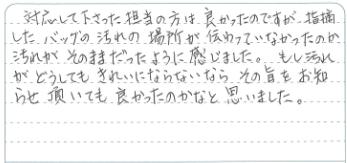 対応して下さった担当の方は良かったのですが、指摘
したバッグの汚れの場所が伝わっていなかったのか
汚れがそのままだったように感じました。もし汚れ
がどうしてもきれいにならないならその旨をお知
らせ頂いても良かったのかなと思いました。